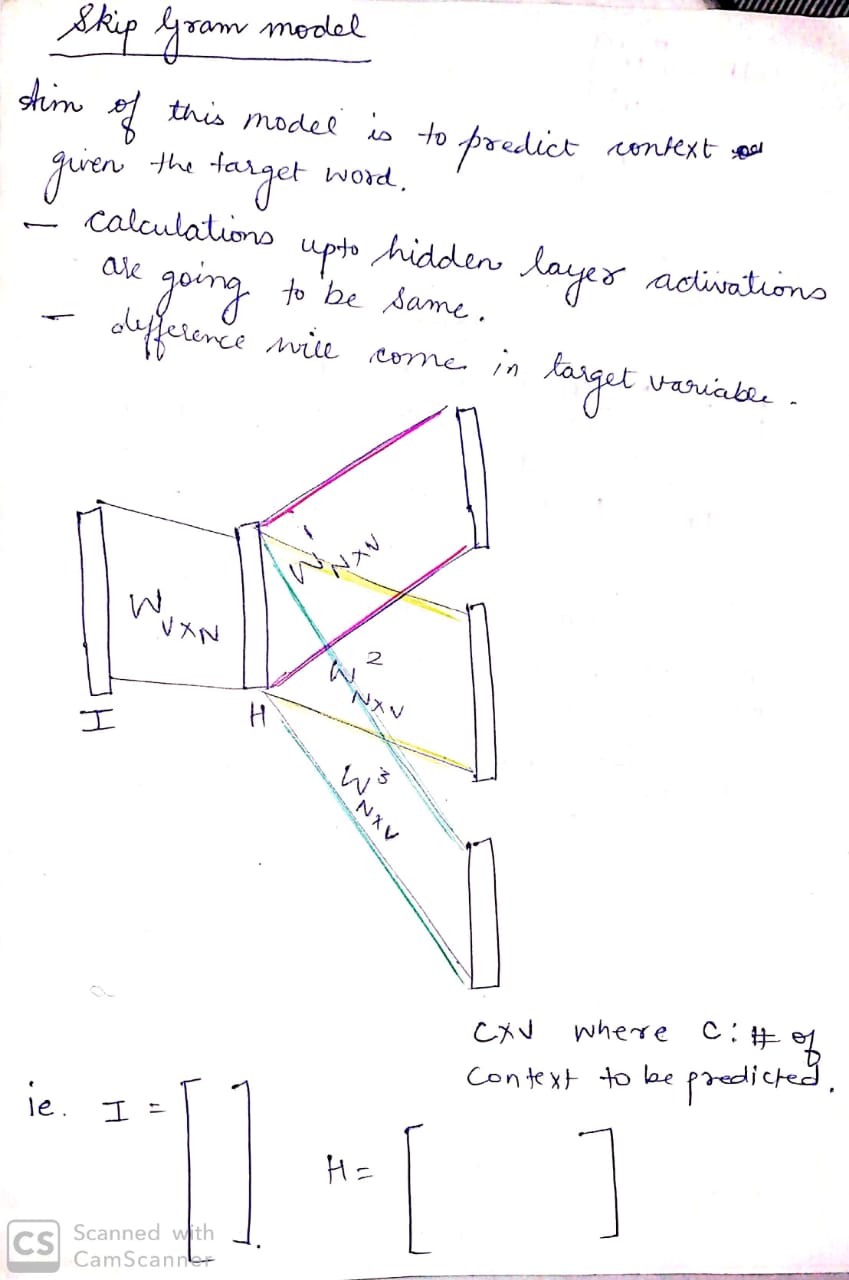 Skip Gram model
Aim of this model is to predict context
given the target word.
- Calculations upto hidden layer activations
are going to be same.
- difference will come in target variable.
W¹NXV
WVXN
W²NXV
I
H
W³NXV
CXV where C: # of
Context to be predicted.
ie. I = [ ]
H = [ ]
CS Scanned with
CamScanner